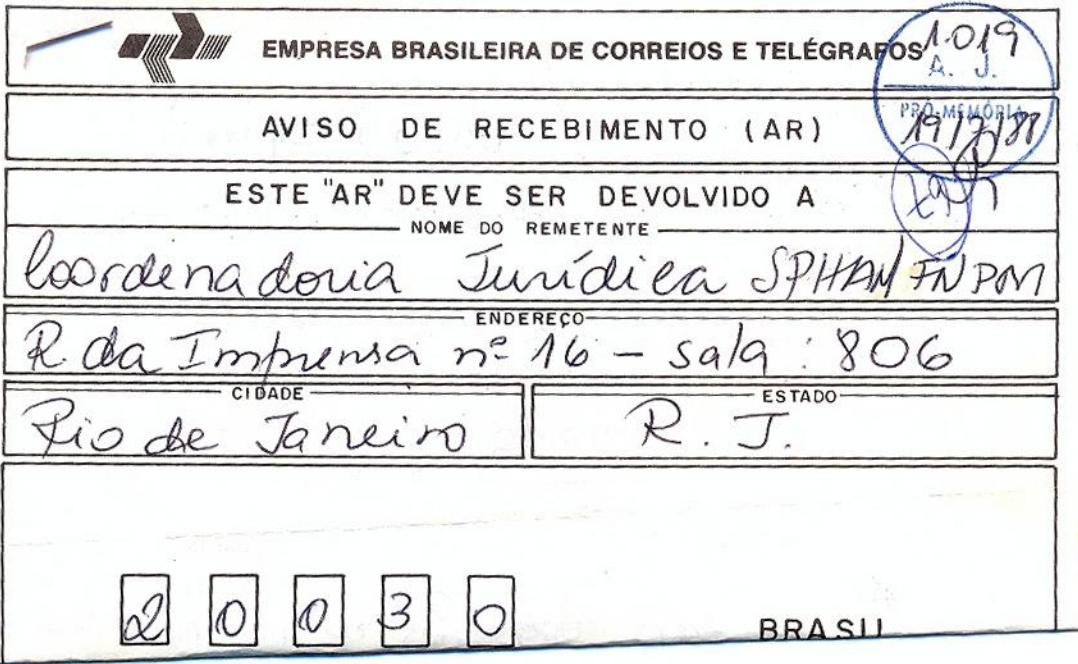 EMPRESA BRASILEIRA DE CORREIOS E TELÉGRAFOS
1.019
A. J.
PRÓ-MEMÓRIA
19/7/88
AVISO DE RECEBIMENTO (AR)
ESTE "AR" DEVE SER DEVOLVIDO A
NOME DO REMETENTE
Coordenadoria Jurídica SPHAN/FNPM
ENDEREÇO
R. da Imprensa nº 16 - sala: 806
CIDADE
Rio de Janeiro
ESTADO
R. J.
20030
BRASIL